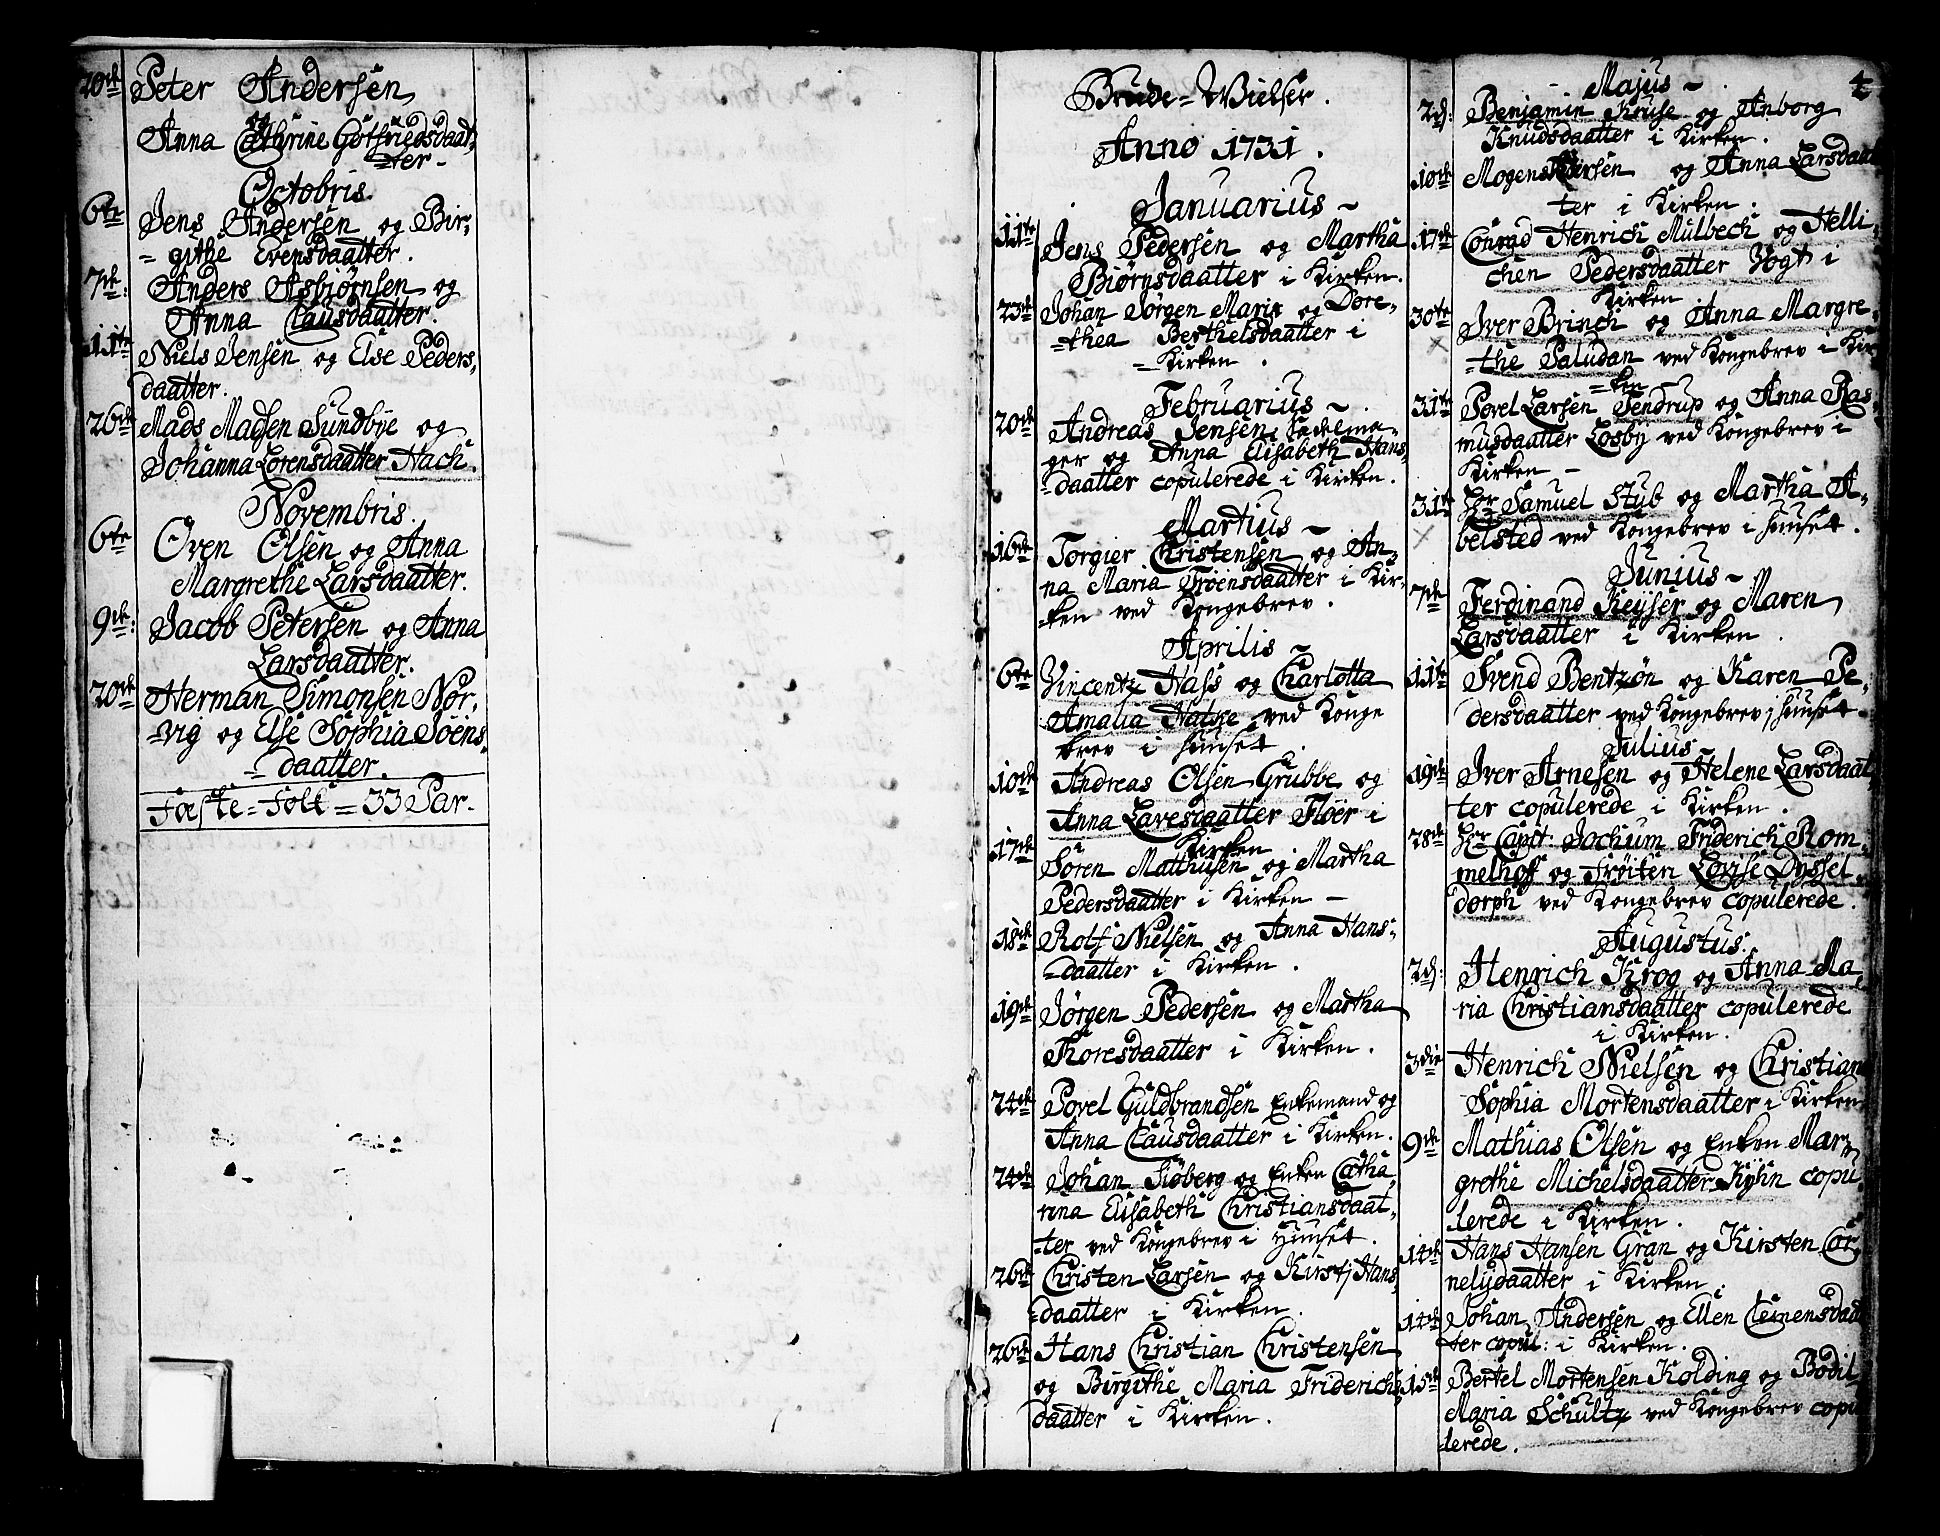 20de Peter Andersen
og
Anna Cathrine Gotfriedsdaat-
ter.
Octobris.
6te Jens Andersen og Bir-
githe Evensdaatter.
7de: Anders Asbjørnsen og
Anna Clausdaatter.
11te Niels Jensen og Else Peders-
daatter.
26de Mads Madsen Sundbye og
Johanna Lorensdaatter Hach.
Novembris.
6te Oven Olsen og Anna
Margrethe Larsdaatter.
9de: Jacob Petersen og Anna
Larsdaatter.
20de Herman Simonsen Nør-
vig og Else Sophia Joens-
daatter.
Fæste-Folk = 33 Par.
Brude-Wielser.
Anno 1731.
Januarius
11te Jens Pedersen og Martha
Biørnsdaatter i Kirken.
23de Johan Jørgen Marix og Dore-
thea Berthelsdaatter i
Kirken.
Februarius
20de Andreas Jensen Sedelma-
ger og Anna Elisabeth Hans-
daatter copulerede i Kirken.
Martius
16de Torgier Christensen og An-
na Maria Troensdaatter i Kir-
ken ved Kongebrev.
Aprilis
6te Vincentz Hass og Charlotta
Amalia Natske ved Konge
brev i Huuset.
10de Andreas Olsen Grubbe og
Anna Lavesdaatter Fløer i
Kirken
17de Søren Matthisen og Martha
Pedersdaatter i Kirken
18de Rolf Nielsen og Anna Hans-
daatter i Kirken.
19de Jørgen Pedersen og Martha
Koresdaatter i Kirken.
24de Povel Guldbrandsen Enkemand og
Anna Clausdaatter i Kirken.
24de Johan Siøberg og Enken Catha-
rina Elisabeth Christiansdaat-
ter ved Kongebrev i Huuset.
26de Christen Larsen og Kirstj Hans-
daatter i Kirken.
26de Hans Christian Christensen
og Birgithe Maria Friderichs-
daatter i Kirken.
4
Majus
2d: Benjamin Kruse og Anborg
Knudsdaatter i Kirken.
10de Mogens Pedersen og Anna Larsdaat
ter i Kirken.
17de Conrad Henrich Mülbech og Helli-
chen Pedersdaatter Vogt i
Kirken
30te Iver Brinch og Anna Margre-
the Paludan ved Kongebrev i Kir-
ken
31te Povel Larsen Tendrup og Anna Ras-
musdaatter Losby ved Kongebrev i
Kirken
31te Hr Samuel Stub og Martha A-
belsted ved Kongebrev i Huuset.
Junius
7de Ferdinand Keyser og Maren
Larsdaatter i Kirken.
11te Svend Bentzøn og Karen Pe-
dersdaatter ved Kongebrev i Huuset.
Julius
19de Iver Arnesen og Helene Larsdaat
ter copulerede i Kirken.
28de Hr Capt. Jochum Friderich Rom-
melhoff og Frøiken Lovise Dyssel-
dorph ved Kongebrev copulerede.
Augustus.
2d: Henrich Krog og Anna Ma-
ria Christiansdaatter copulerede
i Kirken.
3die Henrich Nielsen og Christian
Sophia Mortensdaatter i Kirken
9de Mathias Olsen og Enken Mar-
grethe Michelsdaatter Kyhn copu-
lerede i Kirken.
14de Hans Hansen Gran og Kirsten Cor-
nelydaatter i Kirken.
14de Johan Andersen og Ellen Clemensdaat
ter copul: i Kirken.
15de Bertel Mortensen Kolding og Bodil-
Maria Schultz ved Kongebrev copu
lerede.